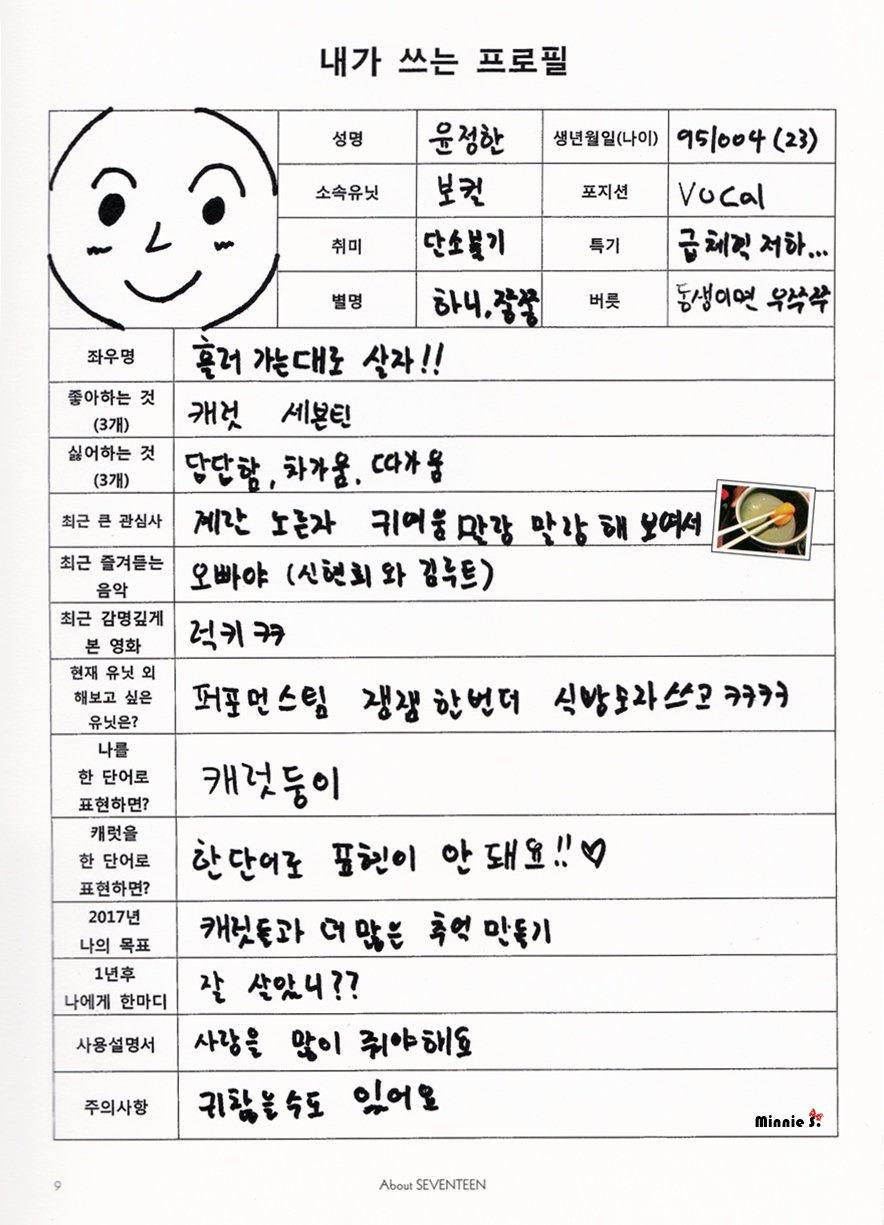 내가 쓰는 프로필
성명 윤정한 생년월일(나이) 951004 (23)
소속유닛 보컬 포지션 Vocal
취미 단소불기 특기 급체력 저하...
별명 하니, 쭝쭝 버릇 동생이면 우쭈쭈
좌우명 흘러 가는대로 살자!!
좋아하는 것
(3개)
캐럿 세븐틴
싫어하는 것
(3개)
답답함, 차가움, 따가움
최근 큰 관심사 계란 노른자 귀여움 말랑 말랑 해 보여서
최근 즐겨듣는
음악
오빠야 (신현희와 김루트)
최근 감명깊게
본 영화
럭키 ㅋㅋ
현재 유닛 외
해보고 싶은
유닛은?
퍼포먼스팀 쟁잼 한번더 식방모자 쓰고 ㅋㅋㅋㅋ
나를
한 단어로
표현하면?
캐럿둥이
캐럿을
한 단어로
표현하면?
한단어로 표현이 안 돼요!!♡
2017년
나의 목표
캐럿들과 더 많은 추억 만들기
1년후
나에게 한마디
잘 살았니??
사용설명서 사랑을 많이 줘야해요
주의사항 귀찮을수도 있어요
Minnie S.
9 About SEVENTEEN